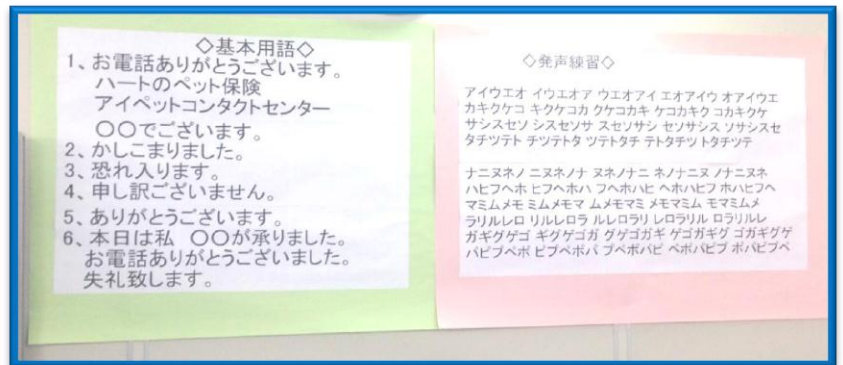 ◇基本用語◇
1、お電話ありがとうございます。
ハートのペット保険
アイペットコンタクトセンター
〇〇でございます。
2、かしこまりました。
3、恐れ入ります。
4、申し訳ございません。
5、ありがとうございます。
6、本日は私 〇〇が承りました。
お電話ありがとうございました。
失礼致します。
◇発声練習◇
アイウエオ イウエオア ウエオアイ エオアイウ オアイウエ
カキクケコ キクケコカ クケコカキ ケコカキク コカキクケ
サシスセソ シスセソサ スセソサシ セソサシス ソサシスセ
タチツテト チツテトタ ツテトタチ テトタチツ トタチツテ
ナニヌネノ ニヌネノナ ヌネノナニ ネノナニヌ ノナニヌネ
ハヒフヘホ ヒフヘホハ フヘホハヒ ヘホハヒフ ホハヒフヘ
マミムメモ ミムメモマ ムメモマミ メモマミム モマミムメ
ラリルレロ リルレロラ ルレロラリ レロラリル ロラリルレ
ガギグゲゴ ギグゲゴガ グゲゴガギ ゲゴガギグ ゴガギグゲ
パピプペポ ピプペポパ プペポパピ ペポパピプ ポパピプペ